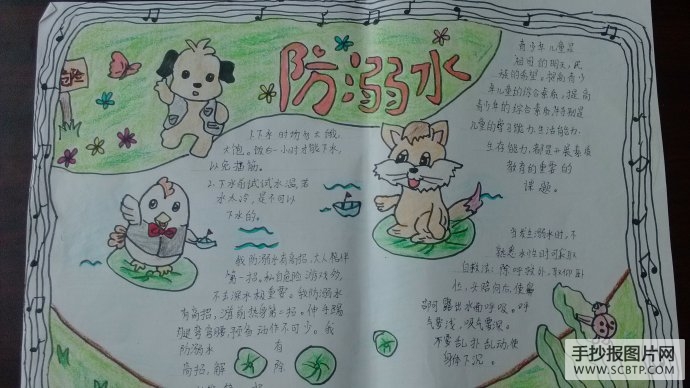 防溺水
危险
1.下水时切勿太饿、
大饱。饭后一小时才能下水,
以免抽筋。
2.下水前试试水温,若
水太冷,是不可以
下水的。
我防溺水有高招,大人陪伴
第一招。私自危险游戏勿,
不去深水极重要。我防溺水
有高招,游前热身第二招。伸手踢
腿弯弯腰,预备动作不可少。我
防溺水 有
高招,解 除
青少年儿童是
祖国的明天,民
族的希望。提高青少
年儿童的综合素质,提高
青少年的综合素质,特别是
儿童的学习能力、生活能力、
生存能力,都是开展素质
教育的重要的
课题。
当发生溺水时,不
熟悉水性时可采取
自救法:除呼救外,取仰卧
位,头部向后,使鼻
部可露出水面呼吸。呼
气要浅,吸气要深。
不要乱扑乱动,使
身体下沉。
手抄报图片网
WWW.SCBTP.COM